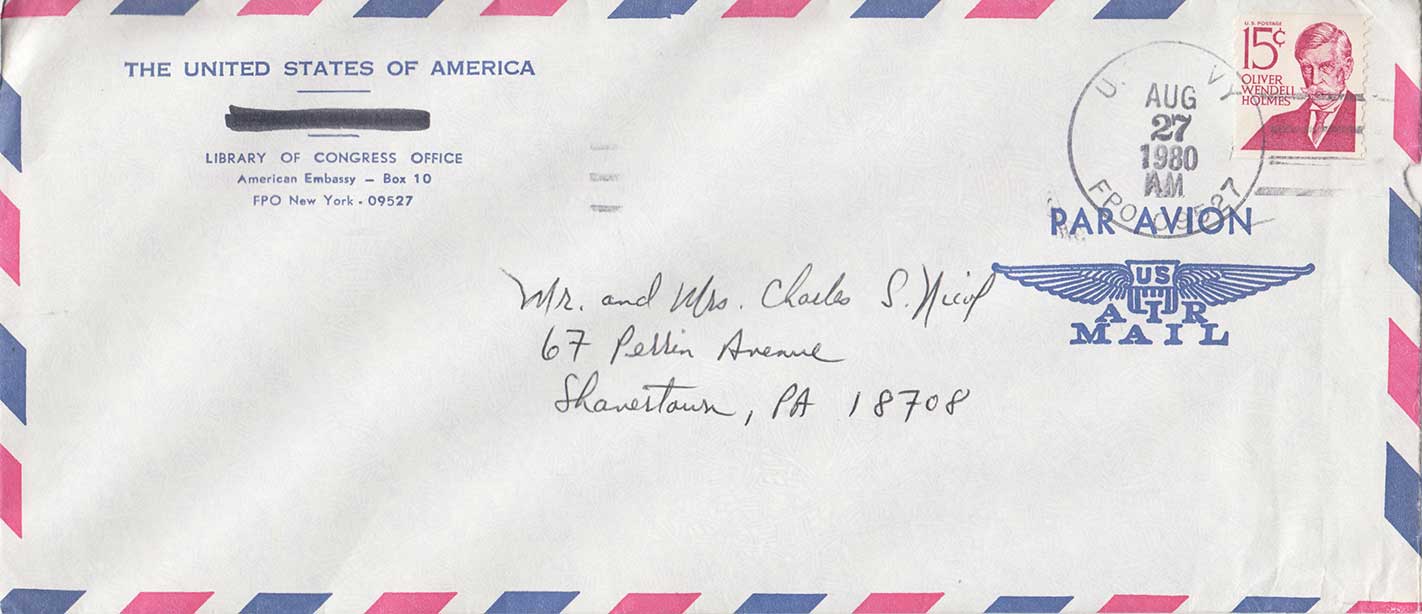 THE UNITED STATES OF AMERICA
LIBRARY OF CONGRESS OFFICE
American Embassy — Box 10
FPO New York - 09527
U.S. POSTAGE
15¢
OLIVER
WENDELL
HOLMES
U. VY
AUG
27
1980
AM
FPO 09527
PAR AVION
US
AIR
MAIL
Mr. and Mrs. Charles S. Nicol
67 Perrin Avenue
Shavertown, PA 18708